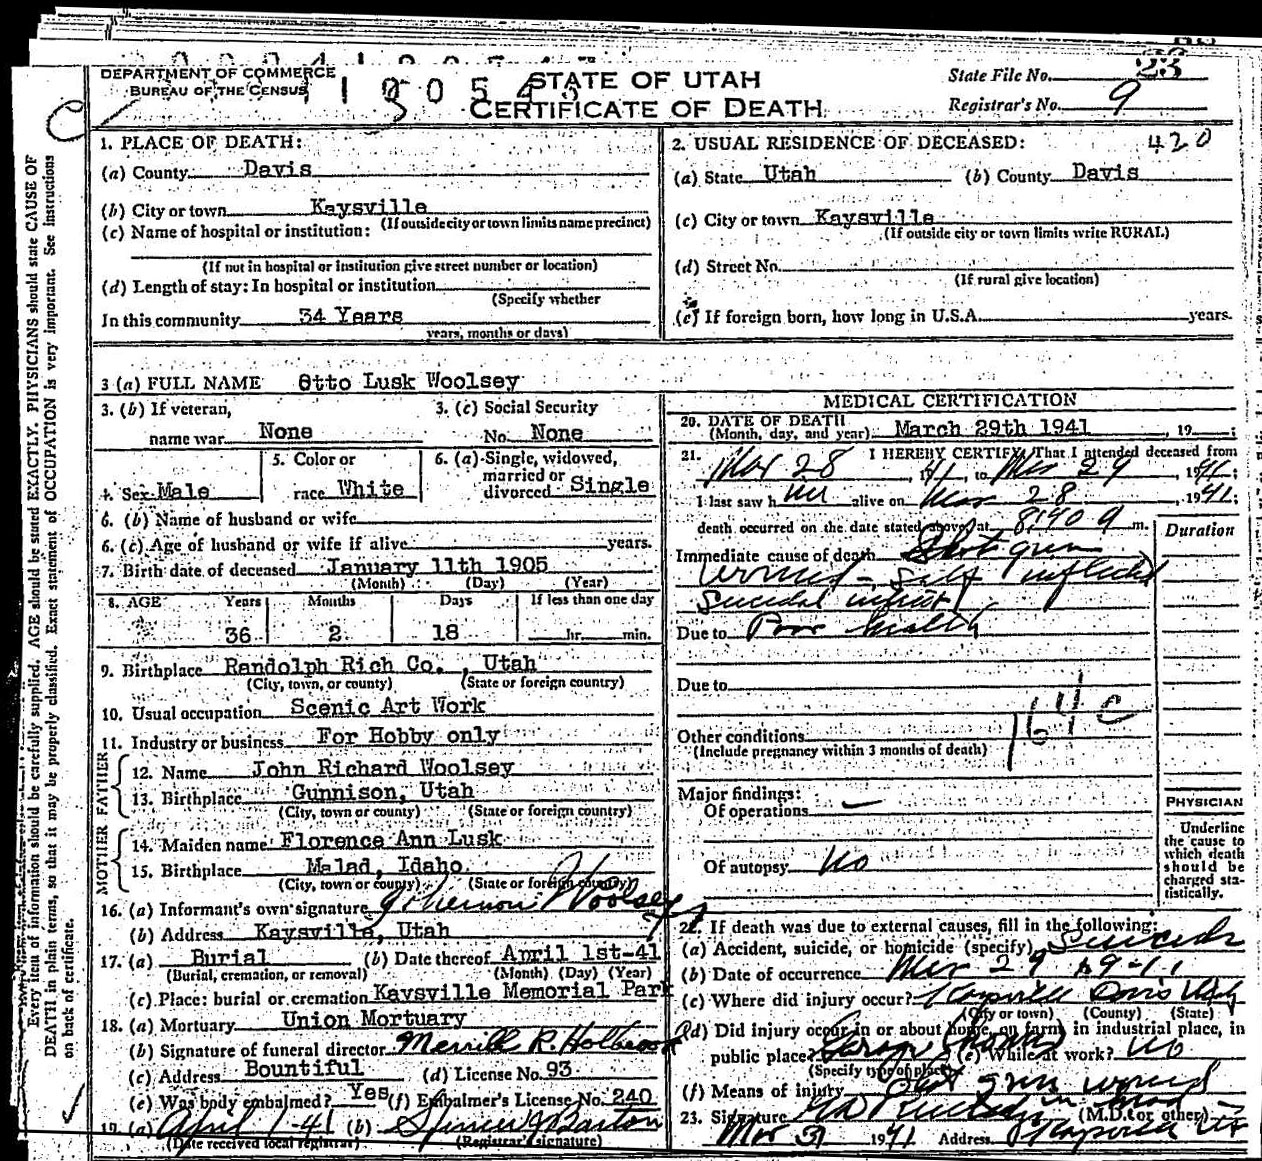 DEPARTMENT OF COMMERCE
BUREAU OF THE CENSUS
STATE OF UTAH
CERTIFICATE OF DEATH
State File No. 23
Registrar's No. 9
1. PLACE OF DEATH:
(a) County Davis
(b) City or town Kaysville
(If outside city or town limits name precinct)
(c) Name of hospital or institution:
(If not in hospital or institution give street number or location)
(d) Length of stay: In hospital or institution
(Specify whether
In this community 34 Years
years, months or days)
2. USUAL RESIDENCE OF DECEASED: 420
(a) State Utah (b) County Davis
(c) City or town Kaysville
(If outside city or town limits write RURAL)
(d) Street No.
(If rural give location)
(e) If foreign born, how long in U.S.A. years.
3 (a) FULL NAME Otto Lusk Woolsey
3. (b) If veteran, 3. (c) Social Security
name war None No. None
4. Sex Male 5. Color or race White 6. (a) Single, widowed, married or divorced Single
6. (b) Name of husband or wife
6. (c) Age of husband or wife if alive years.
7. Birth date of deceased January 11th 1905
(Month) (Day) (Year)
8. AGE Years Months Days If less than one day
36 2 18 hr. min.
9. Birthplace Randolph Rich Co., Utah
(City, town, or county) (State or foreign country)
10. Usual occupation Scenic Art Work
11. Industry or business For Hobby only
FATHER
12. Name John Richard Woolsey
13. Birthplace Gunnison, Utah
(City, town or county) (State or foreign country)
MOTHER
14. Maiden name Florence Ann Lusk
15. Birthplace Malad, Idaho
(City, town or county) (State or foreign country)
16. (a) Informant's own signature Vernon Woolsey
(b) Address Kaysville, Utah
17. (a) Burial (b) Date thereof April 1st-41
(Burial, cremation, or removal) (Month) (Day) (Year)
(c) Place: burial or cremation Kaysville Memorial Park
18. (a) Mortuary Union Mortuary
(b) Signature of funeral director Merrill R. Holbrook
(c) Address Bountiful (d) License No. 93
(e) Was body embalmed? Yes (f) Embalmer's License No. 240
19. (a) April 1-41 (b) Spencer Barton
(Date received local registrar) (Registrar's signature)
MEDICAL CERTIFICATION
20. DATE OF DEATH
(Month, day, and year) March 29th 1941, 19
21. I HEREBY CERTIFY, That I attended deceased from
Mar 28, 41, to Mar 29, 1941;
I last saw him alive on Mar 28, 1941;
death occurred on the date stated above, at m.
Duration
Immediate cause of death Shot gun
wound - Self inflicted
Suicidal intent
Due to Poor health
Due to
164 c
Other conditions
(Include pregnancy within 3 months of death)
Major findings:
Of operations
Of autopsy No
PHYSICIAN
Underline
the cause to
which death
should be
charged sta-
tistically.
22. If death was due to external causes, fill in the following:
(a) Accident, suicide, or homicide (specify) Suicide
(b) Date of occurrence Mar 29
(c) Where did injury occur? Kaysville Davis Utah
(City or town) (County) (State)
(d) Did injury occur in or about home, on farm, in industrial place, in
public place? Garage (home) (e) While at work? No
(Specify type of place)
(f) Means of injury Shot gun wound
23. Signature (M.D. or other)
Mar 31 1941 Address Kaysville Ut
Every item of information should be carefully supplied. AGE should be stated EXACTLY. PHYSICIANS should state CAUSE OF
DEATH in plain terms, so that it may be properly classified. Exact statement of OCCUPATION is very important. See instructions
on back of certificate.